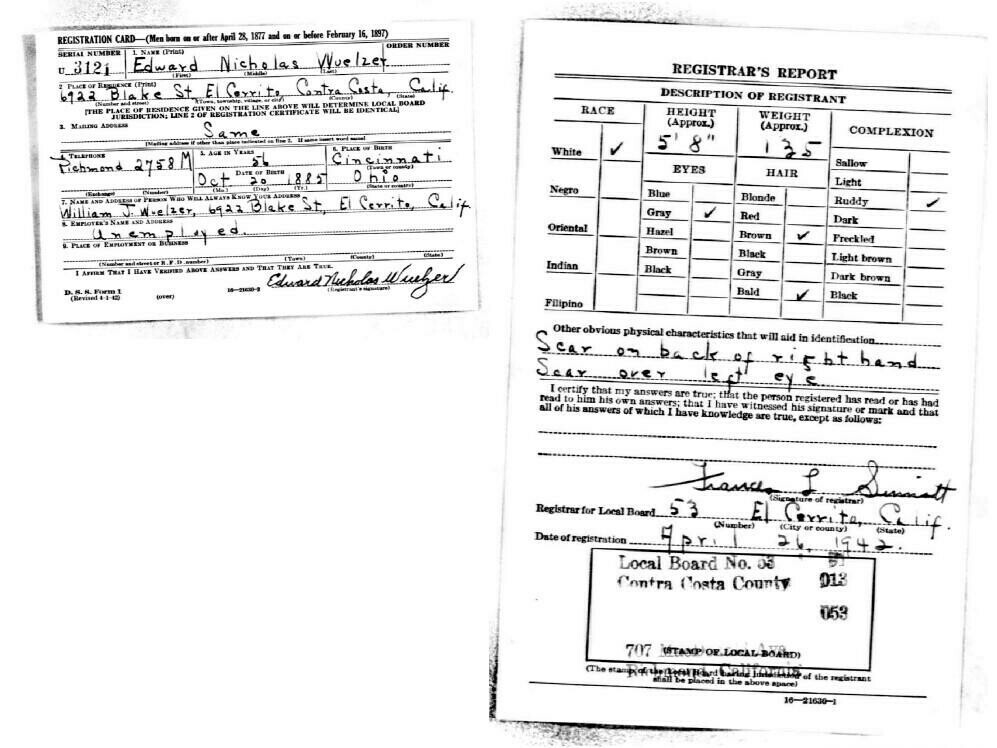 REGISTRATION CARD—(Men born on or after April 28, 1877 and on or before February 16, 1897)
SERIAL NUMBER
1. NAME (Print)
ORDER NUMBER
U 3121
Edward Nicholas Wuelzer
(First) (Middle) (Last)
2. PLACE OF RESIDENCE (Print)
6922 Blake St, El Cerrito, Contra Costa, Calif.
(Number and street) (Town, township, village, or city) (County) (State)
[THE PLACE OF RESIDENCE GIVEN ON THE LINE ABOVE WILL DETERMINE LOCAL BOARD
JURISDICTION; LINE 2 OF REGISTRATION CERTIFICATE WILL BE IDENTICAL]
3. MAILING ADDRESS
Same
[Mailing address if other than place indicated on line 2. If same insert word same]
4. TELEPHONE
5. AGE IN YEARS
6. PLACE OF BIRTH
Richmond 2758M
56
Cincinnati
(Town or county)
DATE OF BIRTH
Oct 20 1885
Ohio
(Exchange) (Number)
(Mo.) (Day) (Yr.)
(State or country)
7. NAME AND ADDRESS OF PERSON WHO WILL ALWAYS KNOW YOUR ADDRESS
William J. Wuelzer, 6922 Blake St, El Cerrito, Calif
8. EMPLOYER'S NAME AND ADDRESS
Unemployed.
9. PLACE OF EMPLOYMENT OR BUSINESS
(Number and street or R. F. D. number) (Town) (County) (State)
I AFFIRM THAT I HAVE VERIFIED ABOVE ANSWERS AND THAT THEY ARE TRUE.
Edward Nicholas Wuelzer
D. S. S. Form 1
(Revised 4-1-42) (over) 16—21630-2 (Registrant's signature)
REGISTRAR'S REPORT
DESCRIPTION OF REGISTRANT
RACE
HEIGHT
(Approx.)
WEIGHT
(Approx.)
COMPLEXION
5' 8"
135
White ✓
EYES
HAIR
Sallow
Light
Negro
Blue
Blonde
Ruddy ✓
Gray ✓
Red
Dark
Oriental
Hazel
Brown ✓
Freckled
Brown
Black
Light brown
Indian
Black
Gray
Dark brown
Bald ✓
Black
Filipino
Other obvious physical characteristics that will aid in identification
Scar on back of right hand
Scar over left eye
I certify that my answers are true; that the person registered has read or has had
read to him his own answers; that I have witnessed his signature or mark and that
all of his answers of which I have knowledge are true, except as follows:
Frances L
(Signature of registrar)
Registrar for Local Board 53 El Cerrito, Calif.
(Number) (City or county) (State)
Date of registration April 26, 1942.
Local Board No. 53
Contra Costa County 013
053
707
(STAMP OF LOCAL BOARD)
(The stamp of the Local Board having jurisdiction of the registrant
shall be placed in the above space)
16—21630-1